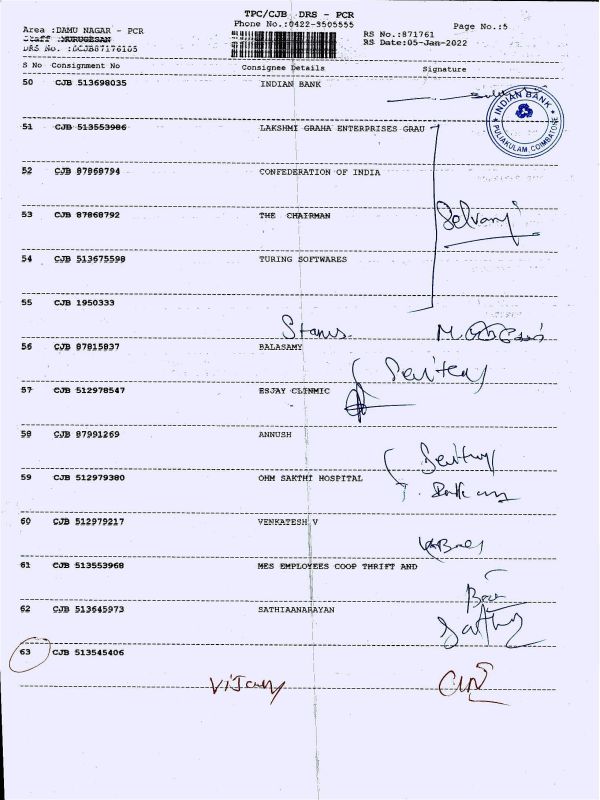 TPC/CJB DRS - PCR
Area :DAMU NAGAR - PCR
Phone No.:0422-3505555
Page No.:5
Staff :MURUGESAN
RS No.:871761
DRS No. :DCJB87176105
RS Date:05-Jan-2022
S No Consignment No Consignee Details Signature
50 CJB 513698035 INDIAN BANK
INDIAN BANK
PULIAKULAM, COIMBATORE
51 CJB 513553986 LAKSHMI GRAHA ENTERPRISES GRAU
52 CJB 87868794 CONFEDERATION OF INDIA
53 CJB 87868792 THE CHAIRMAN
Selvaraj
54 CJB 513675598 TURING SOFTWARES
55 CJB 1950333
56 CJB 87815837 BALASAMY
57 CJB 512978547 ESJAY CLINMIC
58 CJB 87991269 ANNUSH
59 CJB 512979380 OHM SAKTHI HOSPITAL
60 CJB 512979217 VENKATESH V
61 CJB 513553968 MES EMPLOYEES COOP THRIFT AND
62 CJB 513645973 SATHIAANARAYAN
63 CJB 513545406
Vijay